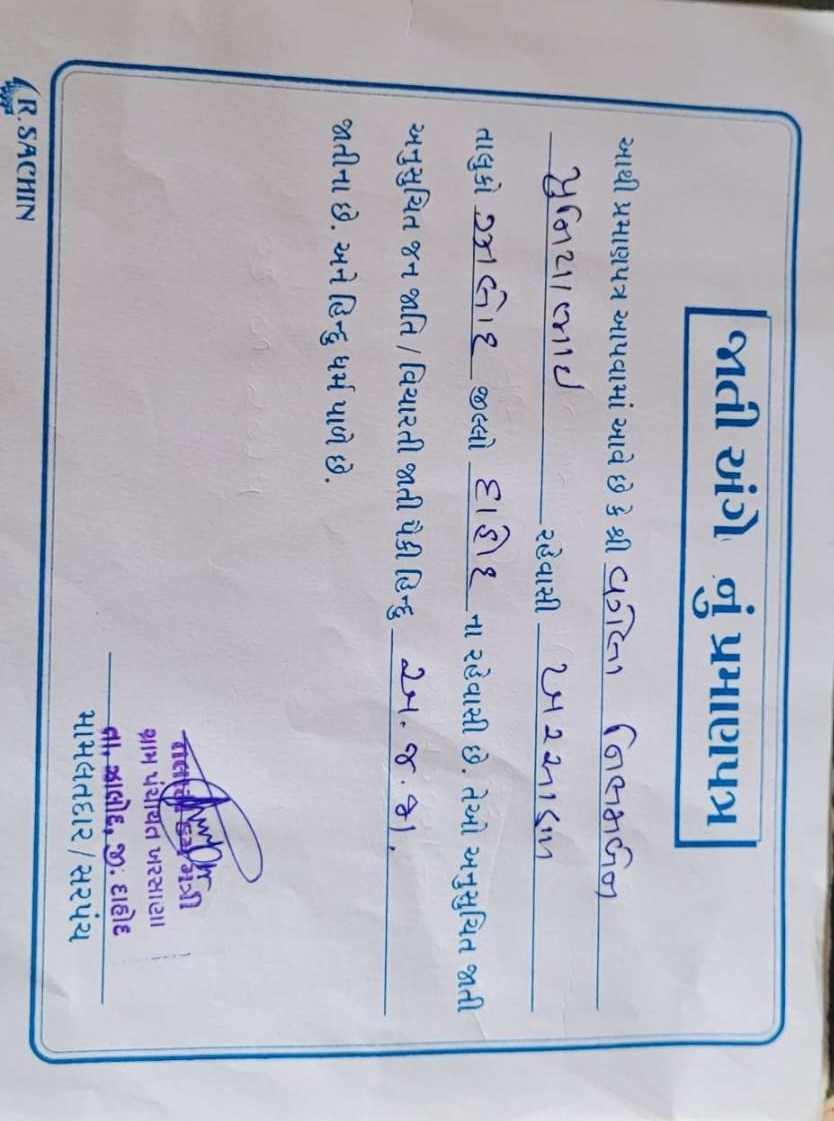 જાતી અંગે નું પ્રમાણપત્ર
આથી પ્રમાણપત્ર આપવામાં આવે છે કે શ્રી
રહેવાસી
તાલુકો ઝાલોદ જીલ્લો દાહોદ ના રહેવાસી છે. તેઓ અનુસુચિત જાતી
અનુસુચિત જન જાતિ / વિચારતી જાતી પૈકી હિન્દુ અ.જ.જા.
જાતીના છે. અને હિન્દુ ધર્મ પાળે છે.
ગ્રામ પંચાયત ખરસાણા
તા. ઝાલોદ, જી. દાહોદ
મામલતદાર / સરપંચ
R. SACHIN